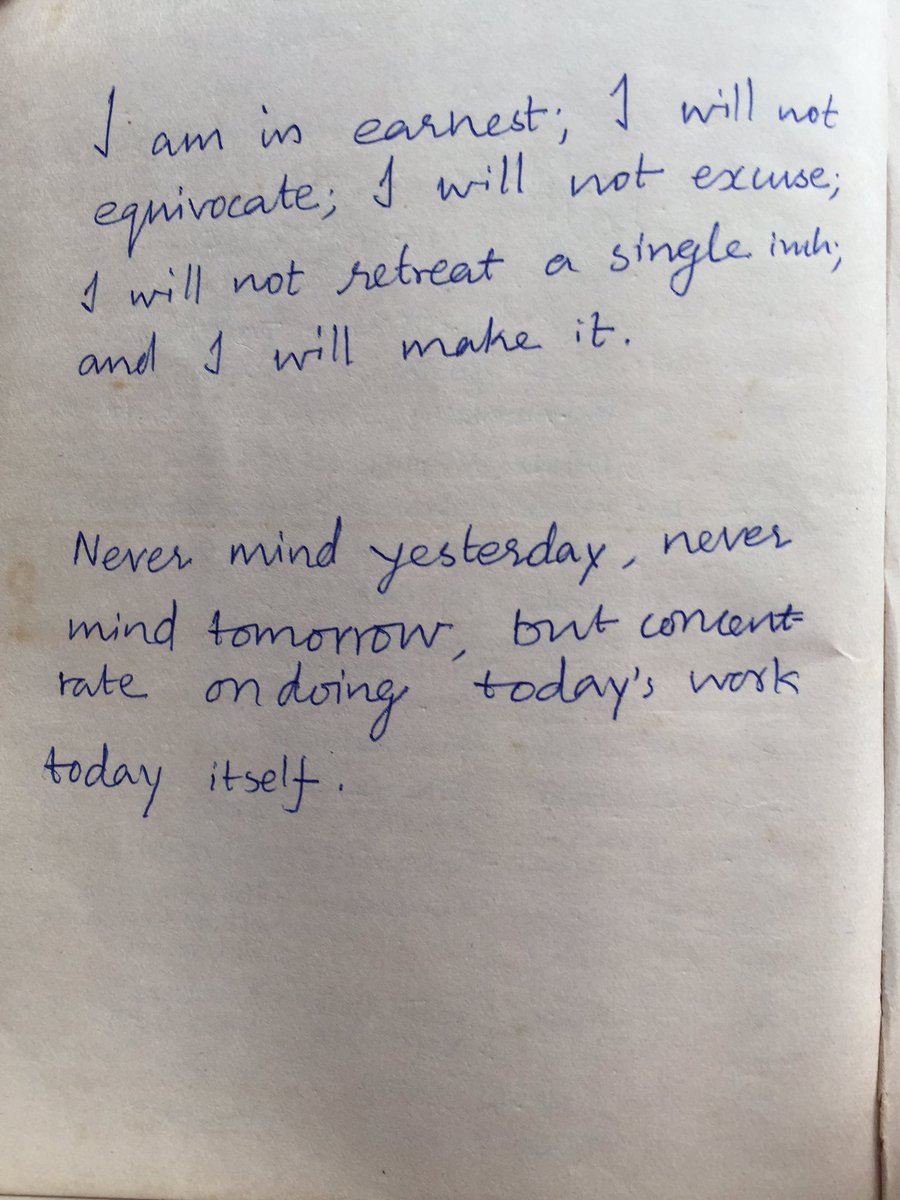 I am in earnest; I will not
equivocate; I will not excuse;
I will not retreat a single inch;
and I will make it.
Never mind yesterday, never
mind tomorrow, but concent-
rate on doing today's work
today itself.